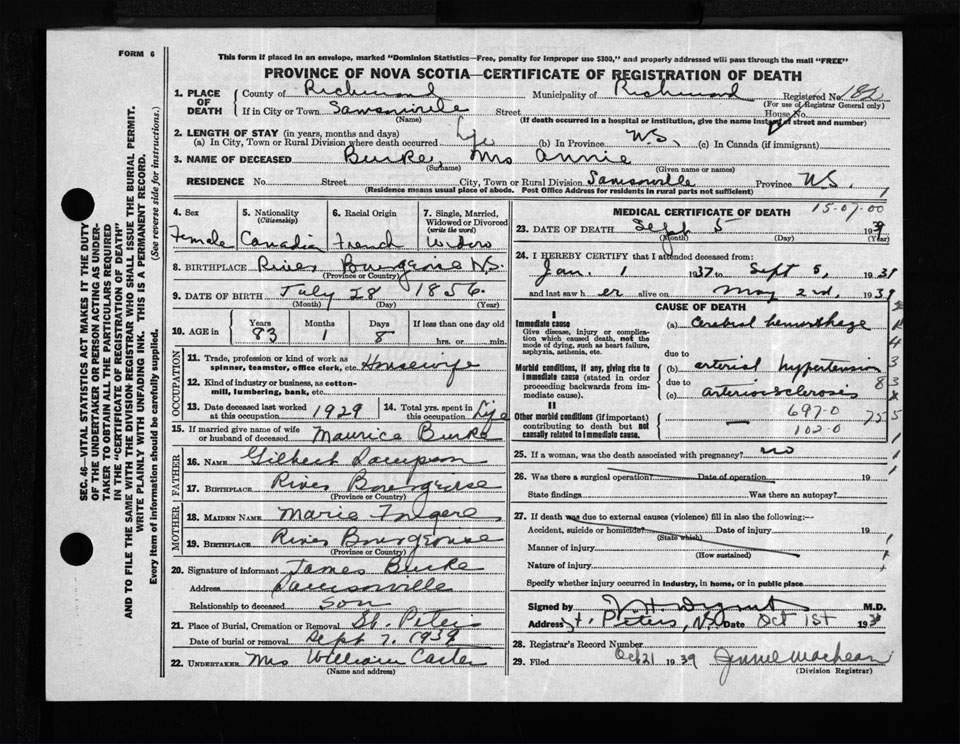 FORM 6
This form if placed in an envelope, marked "Dominion Statistics—Free, penalty for improper use $300," and properly addressed will pass through the mail "FREE"
PROVINCE OF NOVA SCOTIA—CERTIFICATE OF REGISTRATION OF DEATH
1. PLACE OF DEATH County of Richmond Municipality of Richmond Registered No. 182
(For use of Registrar General only)
If in City or Town Samsonville Street House No.
(Name) (If death occurred in a hospital or institution, give the name instead of street and number)
2. LENGTH OF STAY (in years, months and days)
(a) In City, Town or Rural Division where death occurred Life (b) In Province N.S. (c) In Canada (if immigrant)
3. NAME OF DECEASED Burke, Mrs Annie
(Surname) (Given name or names)
RESIDENCE No. Street City, Town or Rural Division Samsonville Province N.S.
(Residence means usual place of abode. Post Office Address for residents in rural parts not sufficient)
4. Sex Female
5. Nationality (Citizenship) Canadian
6. Racial Origin French
7. Single, Married, Widowed or Divorced (write the word) Widow
8. BIRTHPLACE River Bourgeoise N.S.
(Province or Country)
9. DATE OF BIRTH July 28 1856
(Month) (Day) (Year)
10. AGE in Years 83 Months 1 Days 8 If less than one day old
hrs. or min.
OCCUPATION
11. Trade, profession or kind of work as spinner, teamster, office clerk, etc. Housewife
12. Kind of industry or business, as cotton-mill, lumbering, bank, etc.
13. Date deceased last worked at this occupation 1929
14. Total yrs. spent in this occupation Life
15. If married give name of wife or husband of deceased Maurice Burke
FATHER
16. NAME Gilbert
17. BIRTHPLACE River Bourgeoise
(Province or Country)
MOTHER
18. MAIDEN NAME Marie
19. BIRTHPLACE River Bourgeoise
(Province or Country)
20. Signature of informant James Burke
Address Samsonville
Relationship to deceased Son
21. Place of Burial, Cremation or Removal St. Peters
Date of burial or removal Sept 7, 1939
22. UNDERTAKER Mrs William Carter
(Name and address)
MEDICAL CERTIFICATE OF DEATH
15-07-00
23. DATE OF DEATH Sept 5 1939
(Month) (Day) (Year)
24. I HEREBY CERTIFY that I attended deceased from:
Jan. 1 1937 to Sept 5, 1939
and last saw her alive on May 2nd, 1939
CAUSE OF DEATH
I
Immediate cause
Give disease, injury or complication which caused death, not the mode of dying, such as heart failure, asphyxia, asthenia, etc.
(a) Cerebral hemorrhage
due to
Morbid conditions, if any, giving rise to immediate cause (stated in order proceeding backwards from immediate cause).
(b) arterial hypertension
due to
(c) arteriosclerosis
II
Other morbid conditions (if important) contributing to death but not causally related to immediate cause.
697-0
102-0
25. If a woman, was the death associated with pregnancy? no
26. Was there a surgical operation? Date of operation 19
State findings Was there an autopsy?
27. If death was due to external causes (violence) fill in also the following:—
Accident, suicide or homicide? Date of injury 19
(State which)
Manner of injury
(How sustained)
Nature of injury
Specify whether injury occurred in industry, in home, or in public place
Signed by M.D.
Address St. Peters, N.S. Date Oct 1st 1939
28. Registrar's Record Number
29. Filed Oct 21 1939
(Division Registrar)
SEC. 46—VITAL STATISTICS ACT MAKES IT THE DUTY
OF THE UNDERTAKER OR PERSON ACTING AS UNDER-
TAKER TO OBTAIN ALL THE PARTICULARS REQUIRED
IN THE "CERTIFICATE OF REGISTRATION OF DEATH"
AND TO FILE THE SAME WITH THE DIVISION REGISTRAR WHO SHALL ISSUE THE BURIAL PERMIT.
WRITE PLAINLY WITH UNFADING INK. THIS IS A PERMANENT RECORD.
Every item of information should be carefully supplied. (See reverse side for instructions.)